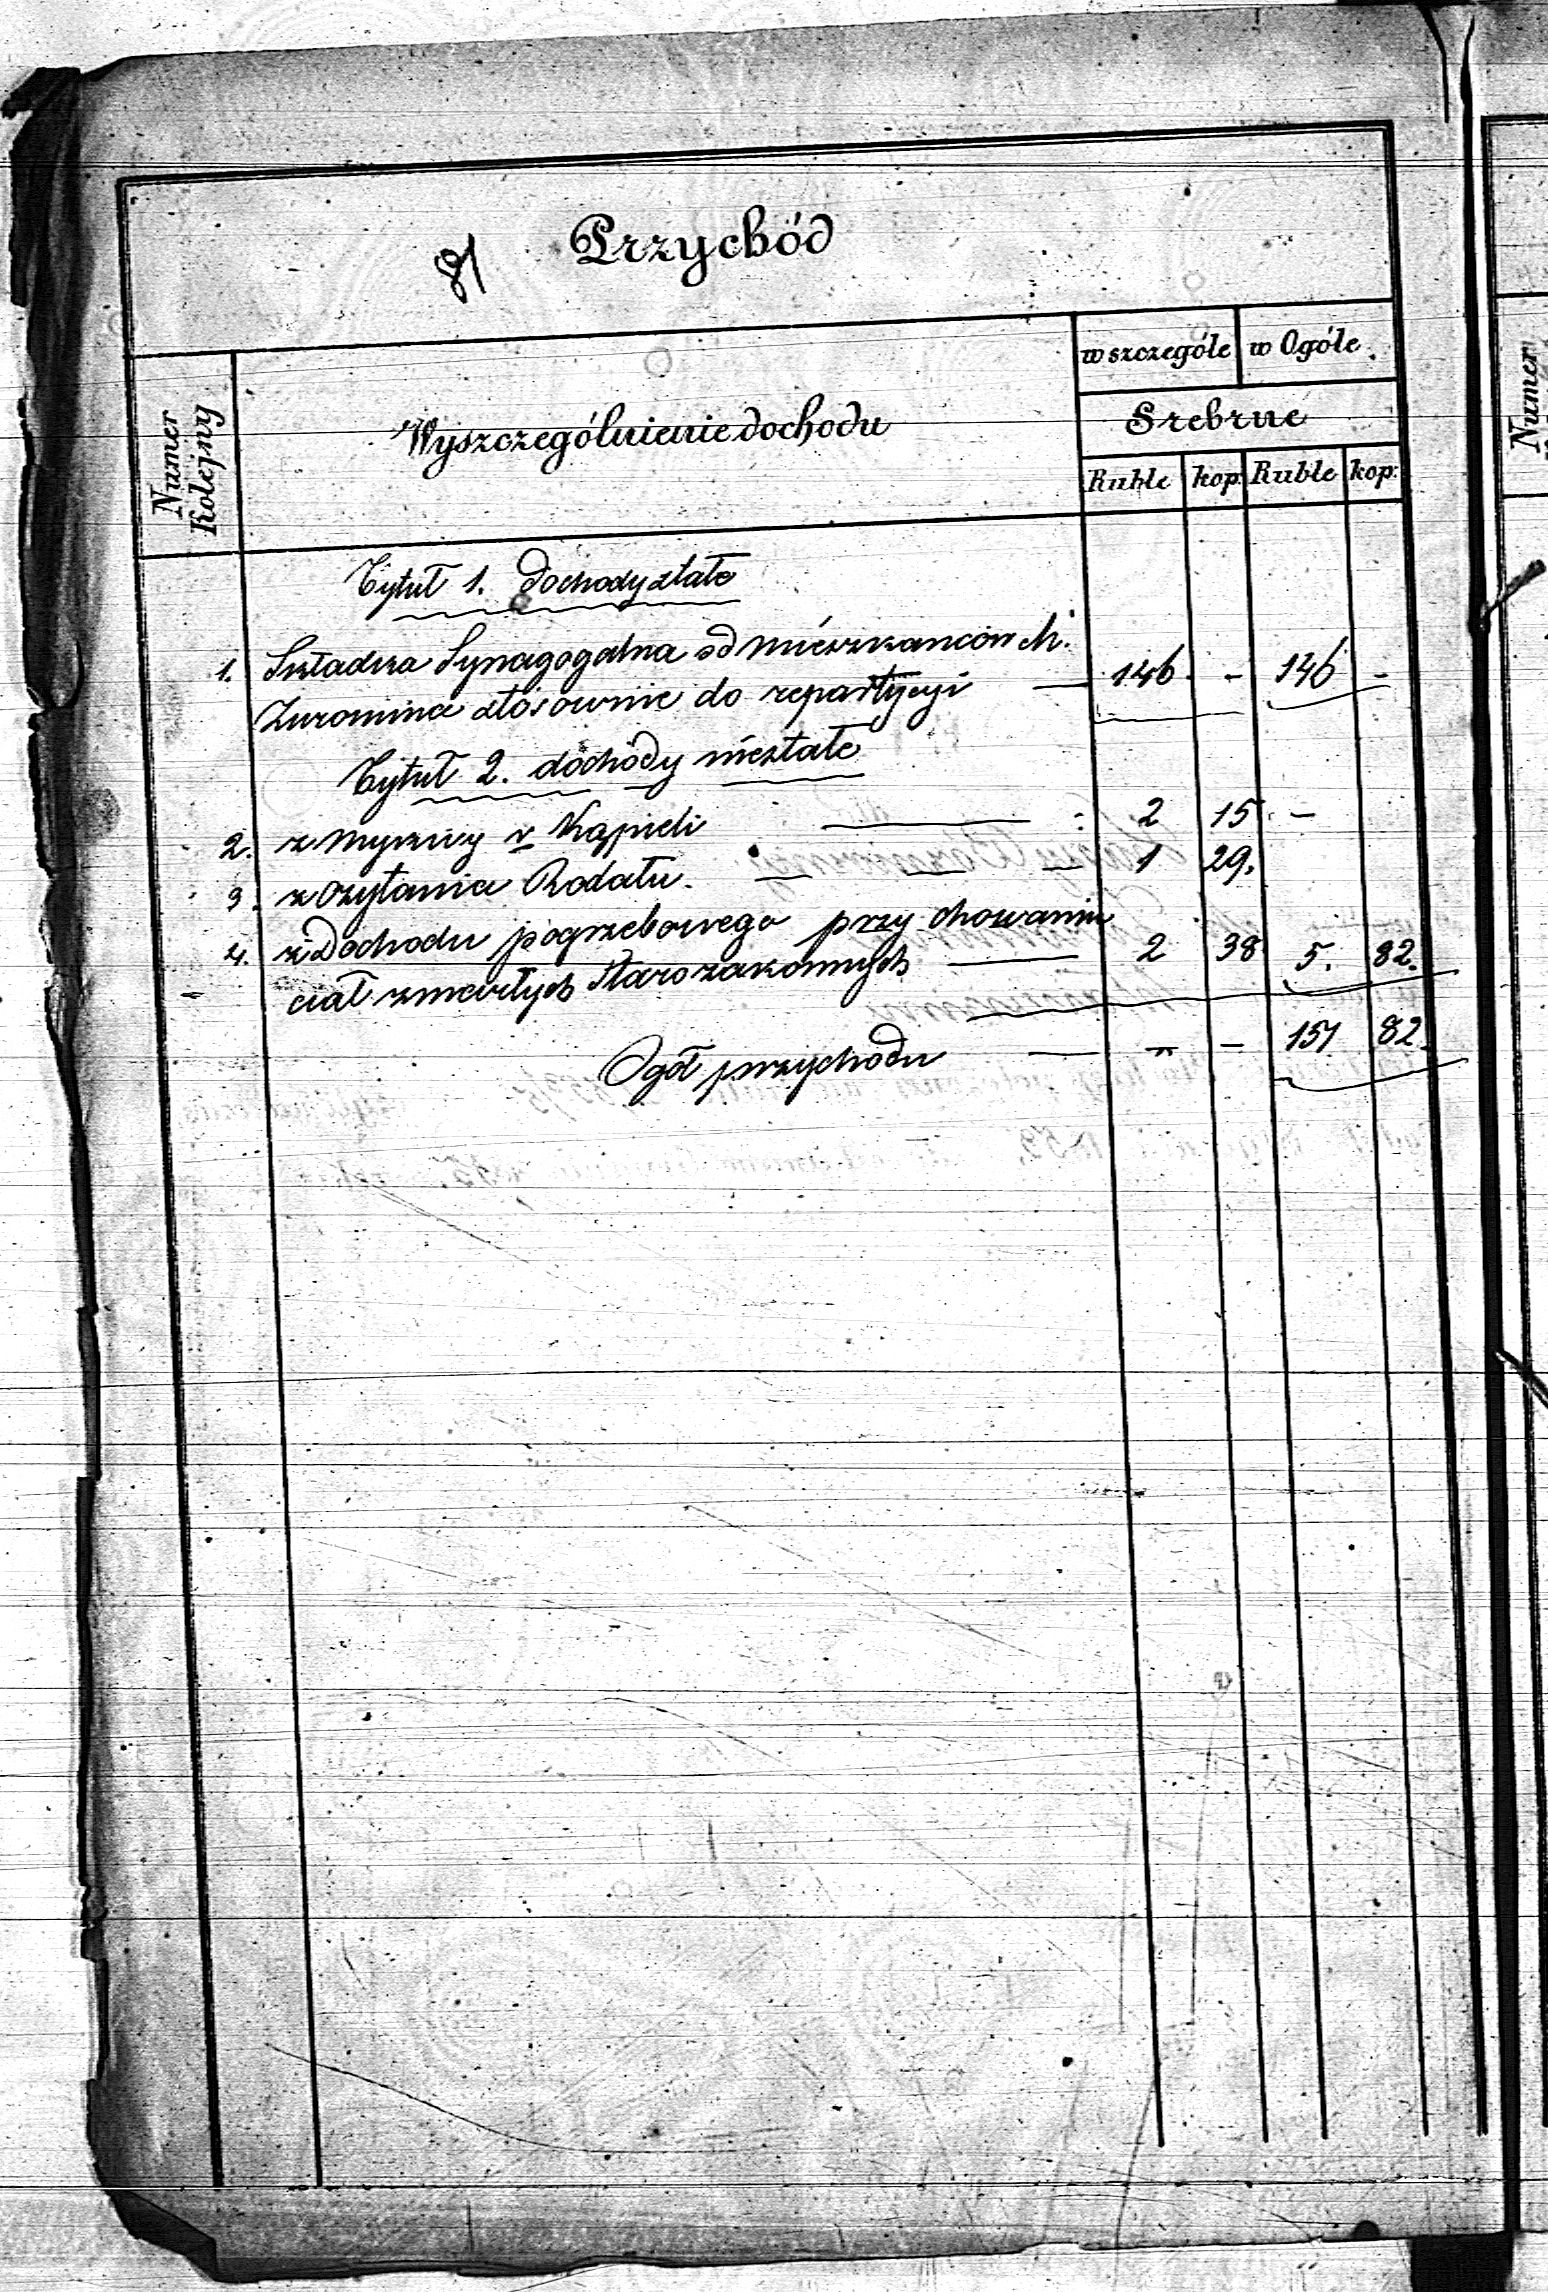 Przychód
81
Numer Kolejny
Wyszczególnienie dochodu
w szczególe w Ogóle
Srebrne
Ruble kop: Ruble kop:
Tytuł 1. Dochody stałe
1. Składka Synagogalna od mieszkancow M.
Zuromina stósownie do repartycyi — 146 - 146 -
Tytuł 2. dochody niestałe
2. z Mykwy v Kąpieli — 2 15 -
3. z czytania Rodału. — — — 1 29.
4. z Dochodu pogrzebowego przy chowaniu
ciał zmarłych Starozakonnych — 2 38 5. 82.
Ogół przychodu — - - 151 82.
Numer